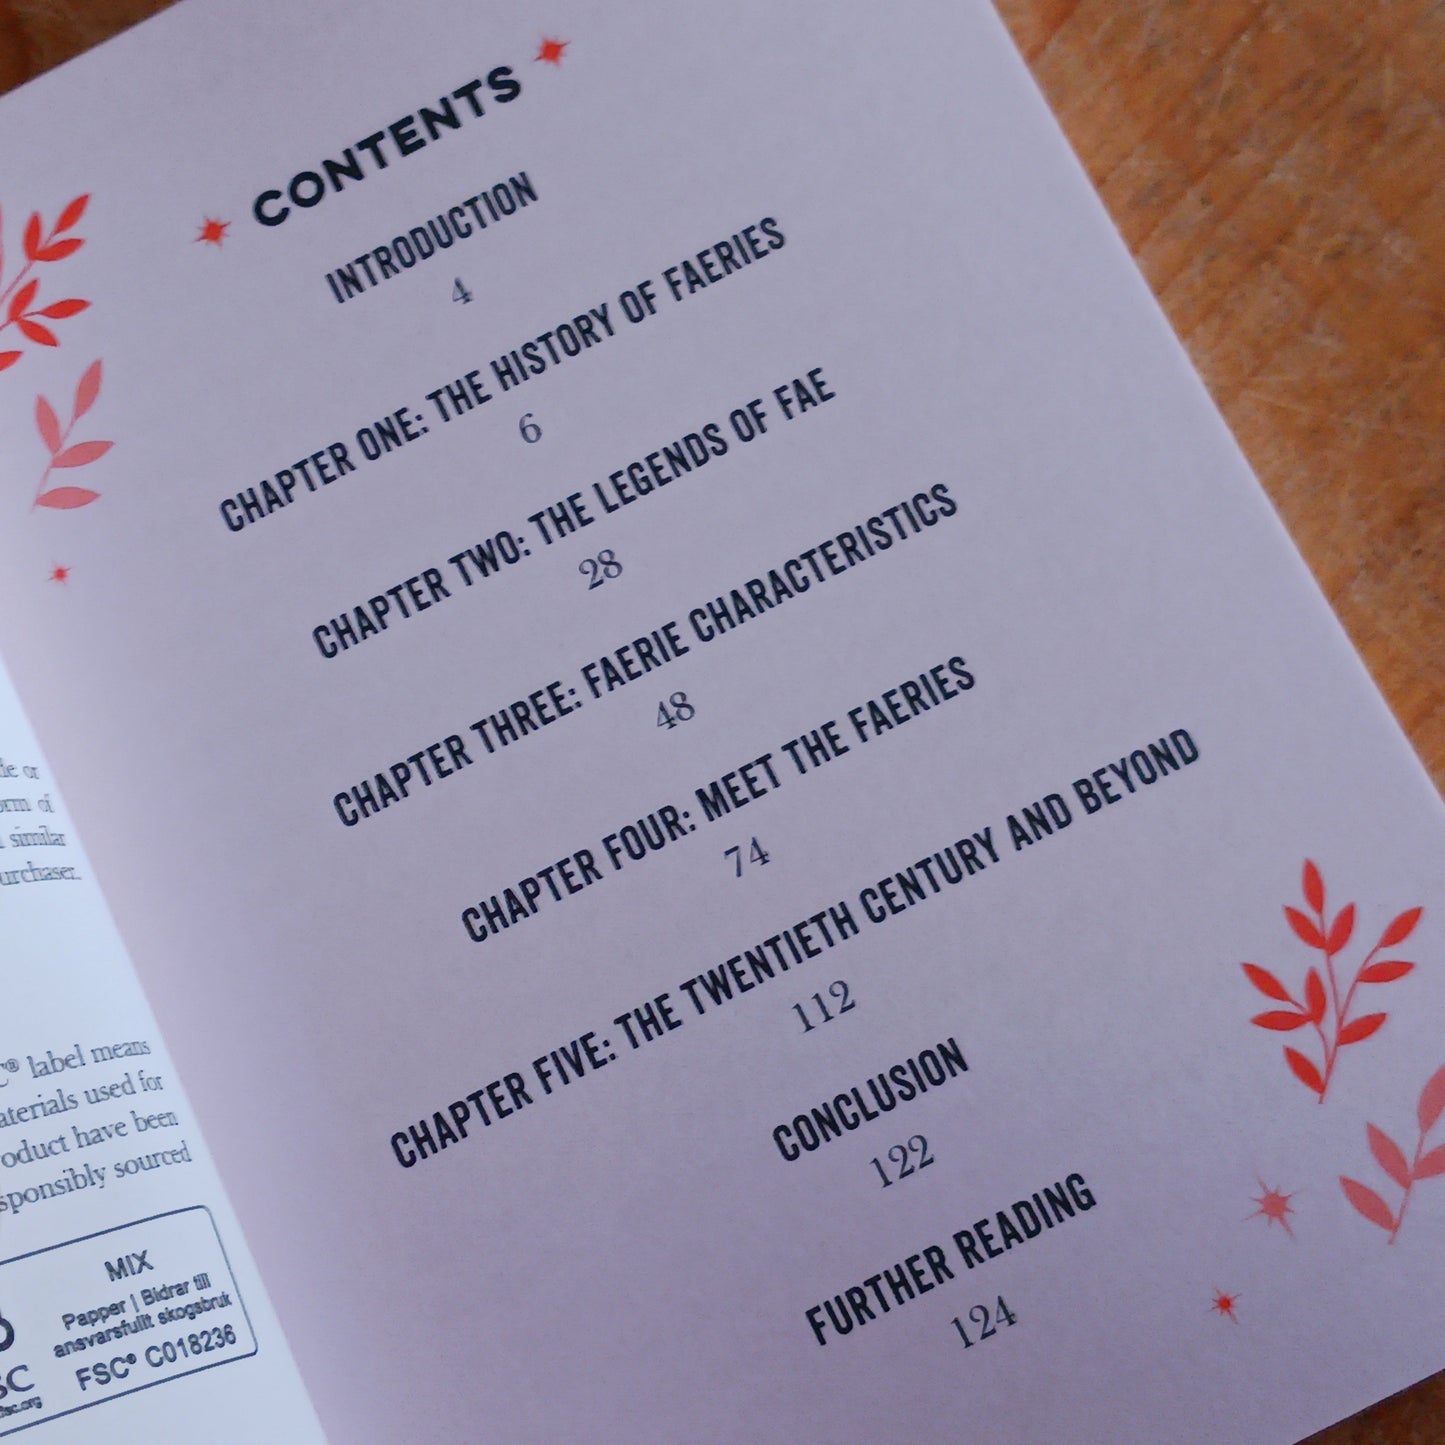 CONTENTS
INTRODUCTION
4
CHAPTER ONE: THE HISTORY OF FAERIES
6
CHAPTER TWO: THE LEGENDS OF FAE
28
CHAPTER THREE: FAERIE CHARACTERISTICS
48
CHAPTER FOUR: MEET THE FAERIES
74
CHAPTER FIVE: THE TWENTIETH CENTURY AND BEYOND
112
CONCLUSION
122
FURTHER READING
124
or
of
similar
label means
used for
have been
sourced
MIX
Papper | Bidrar till
ansvarsfullt skogsbruk
FSC® C018236